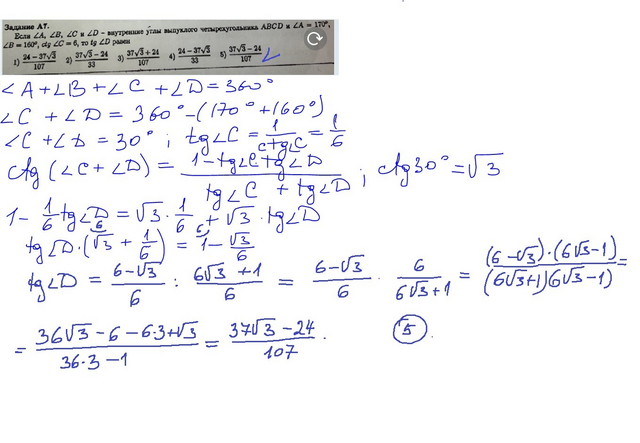 Задание А7.
Если ∠A, ∠B, ∠C и ∠D – внутренние углы выпуклого четырехугольника ABCD и ∠A = 170°,
∠B = 160°, ctg ∠C = 6, то tg ∠D равен
1) (24 − 37√3)/107 2) (37√3 − 24)/33 3) (37√3 + 24)/107 4) (24 − 37√3)/33 5) (37√3 − 24)/107
∠A + ∠B + ∠C + ∠D = 360°
∠C + ∠D = 360° − (170° + 160°)
∠C + ∠D = 30° ; tg∠C = 1/ctg∠C = 1/6
ctg (∠C + ∠D) = (1 − tg∠C tg∠D)/(tg∠C + tg∠D) ; ctg 30° = √3
1 − 1/6 tg∠D = √3 · 1/6 + √3 · tg∠D
tg∠D · (√3 + 1/6) = 1 − √3/6
tg∠D = (6 − √3)/6 : (6√3 + 1)/6 = (6 − √3)/6 · 6/(6√3 + 1) = (6 − √3) · (6√3 − 1)/(6√3 + 1)(6√3 − 1) =
= (36√3 − 6 − 6·3 + √3)/(36·3 − 1) = (37√3 − 24)/107 . 5 .